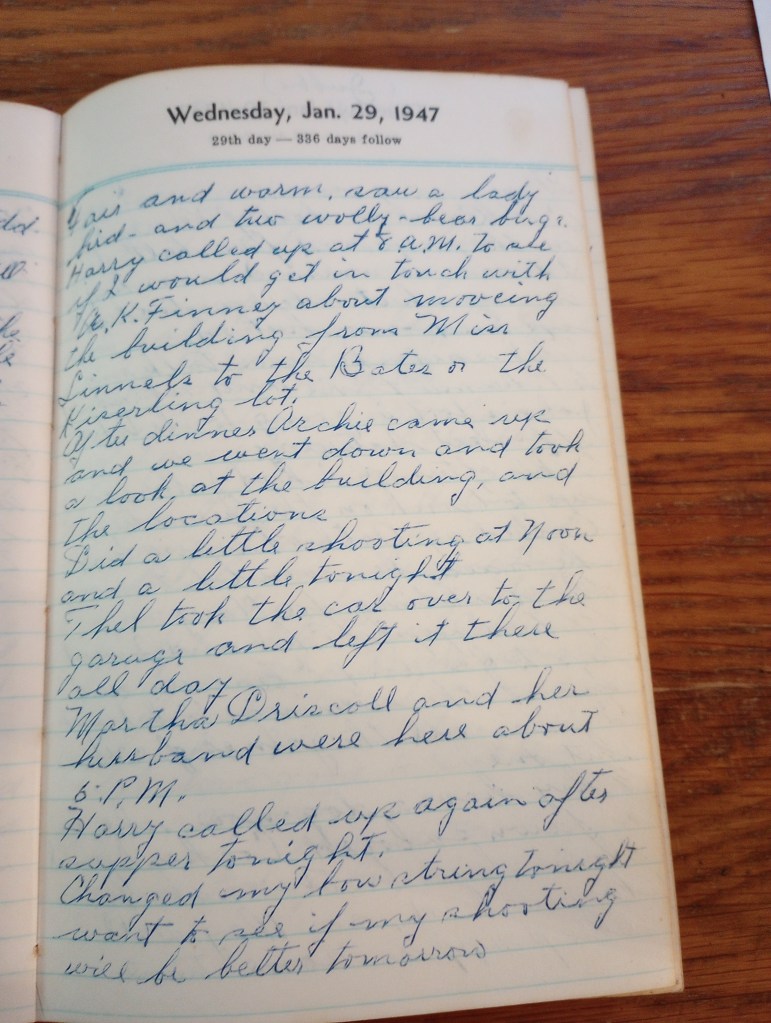 Wednesday, Jan. 29, 1947
29th day — 336 days follow
Fair and warm, saw a lady
bird- and two wolly-bear bugs.
Harry called up at 8 A.M. to see
if I would get in touch with
K. Finney about moveing
the building from Miss
Linnels to the Bates or the
Kiserling lot.
After dinner Archie came up
and we went down and took
a look at the building, and
the locations
Did a little shooting at Noon
and a little tonight
Thel took the car over to the
garage and left it there
all day
Martha Driscoll and her
husband were here about
5 P.M.
Harry called up again after
supper tonight.
Changed my bow string tonight
want to see if my shooting
will be better tomorrow